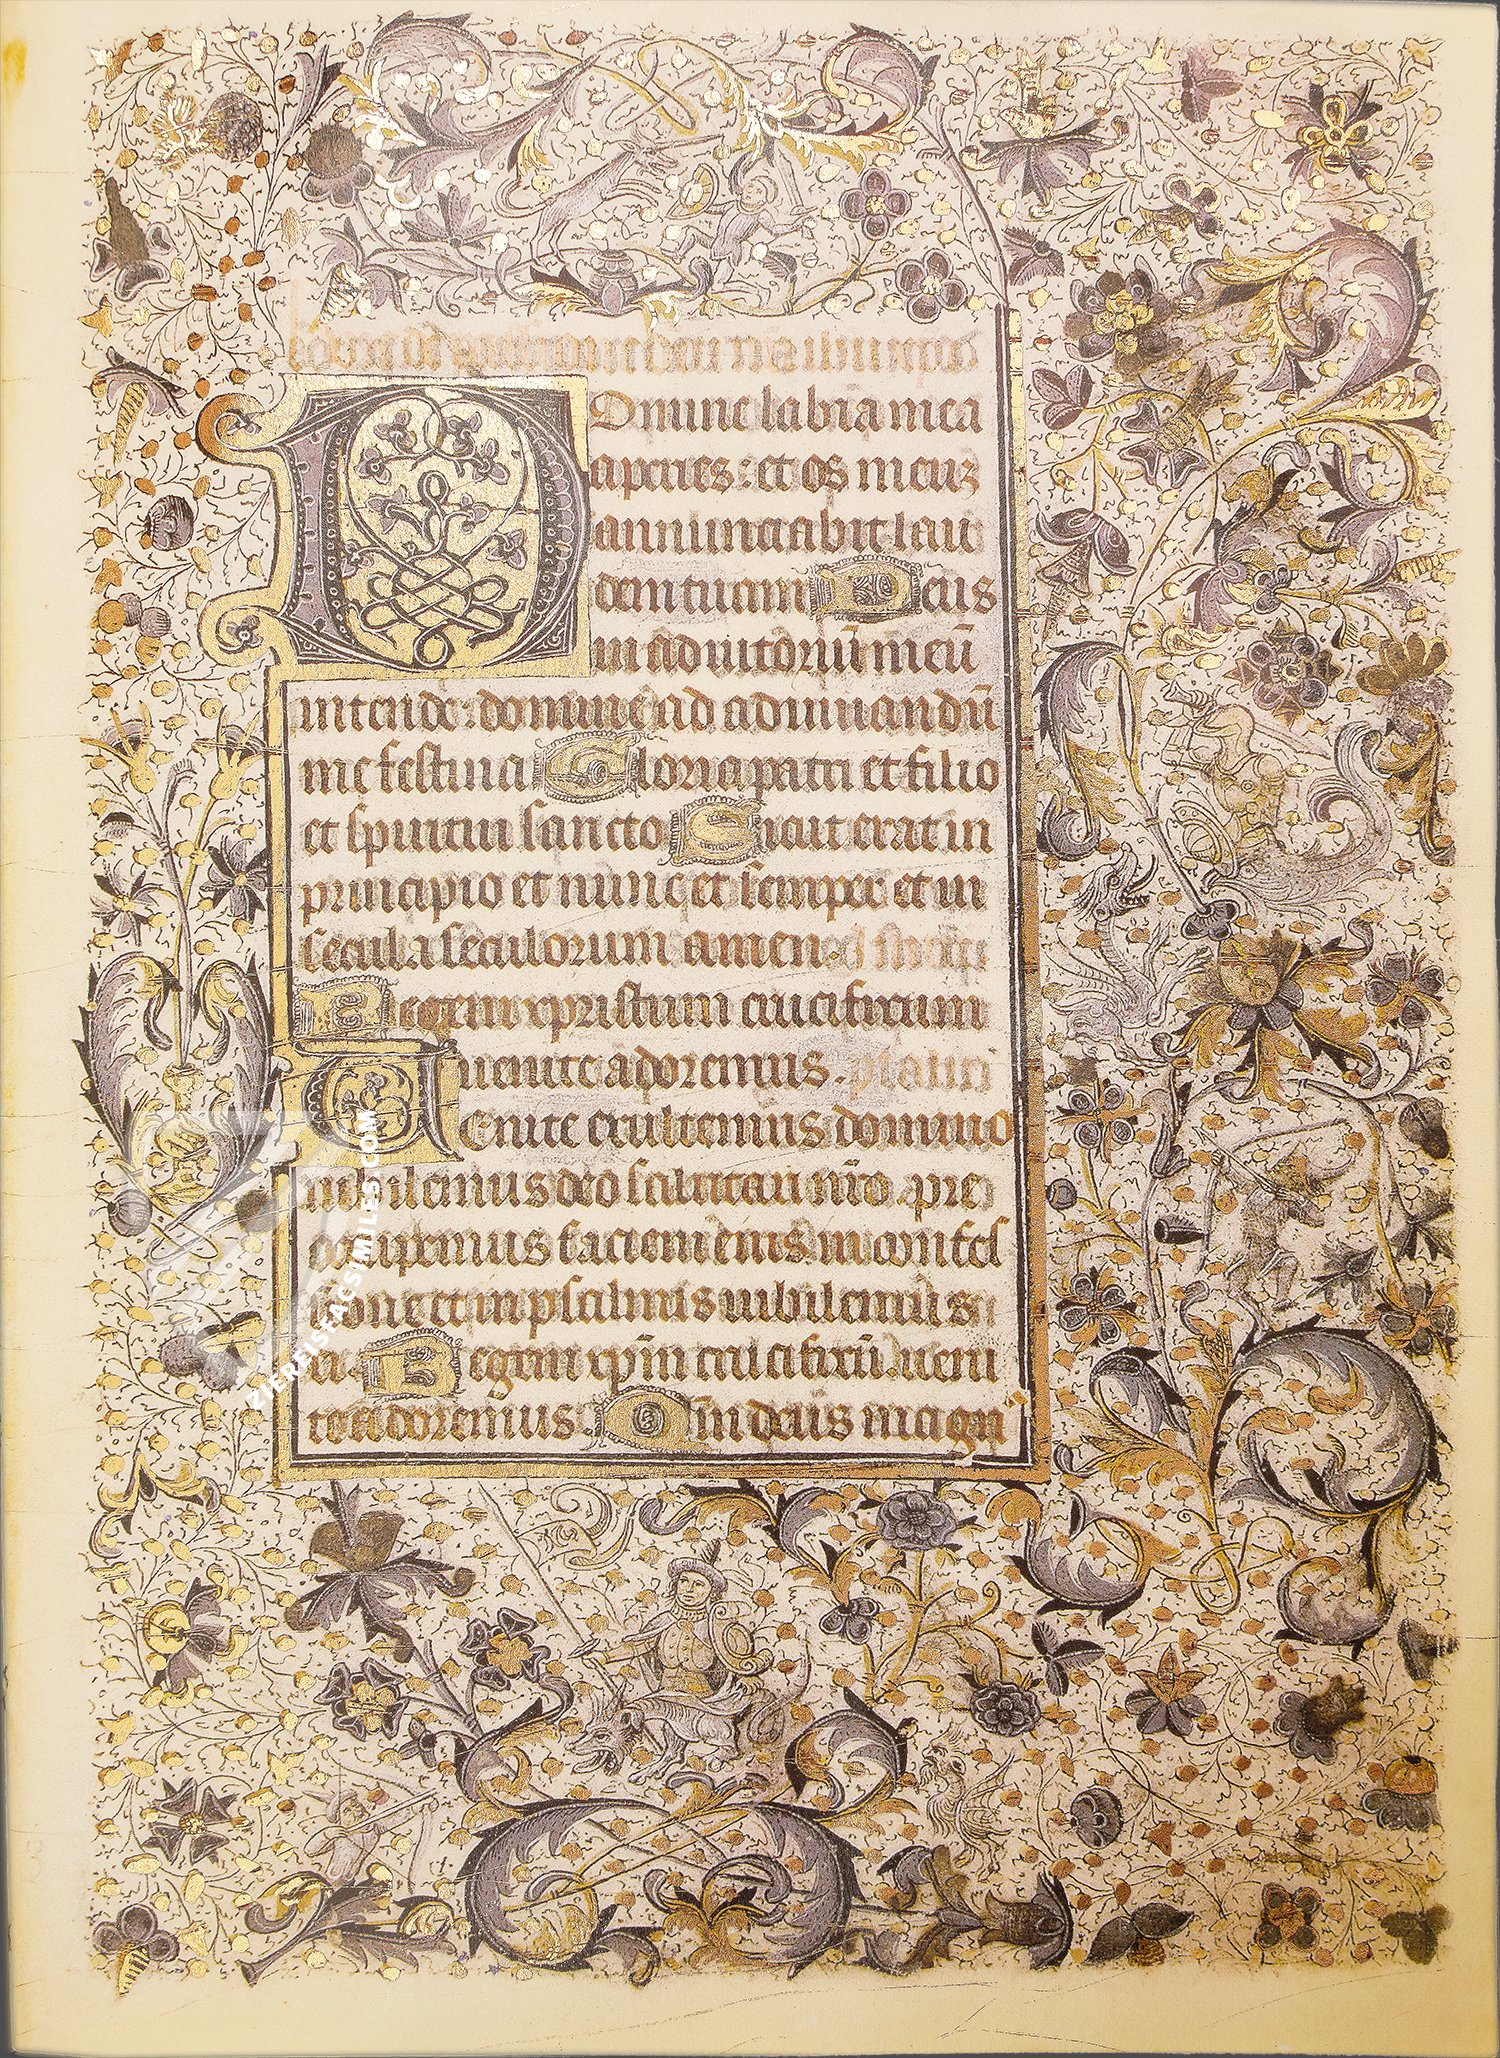 Domine labia mea
aperies : et os meuz
annunciabit lau
dem tuam Deus
in adiutoriū meū
intende : domine ad adiuuandū
me festina Gloria patri et filio
et spiritui sancto Sicut erat in
principio et nunc et semper et in
secula seculorum amen.
Regem xpristum crucifixum
uenite adoremus.
Venite exultemus domino
iubilemus deo salutari nr̄o. pre
occupemus faciem eius in confes
sione et in psalmis iubilemus
ei. Regem xpm̄ crucifixū. ueni
te adoremus. Qm̄ deus magn
ZIEREISFACSIMILES.COM